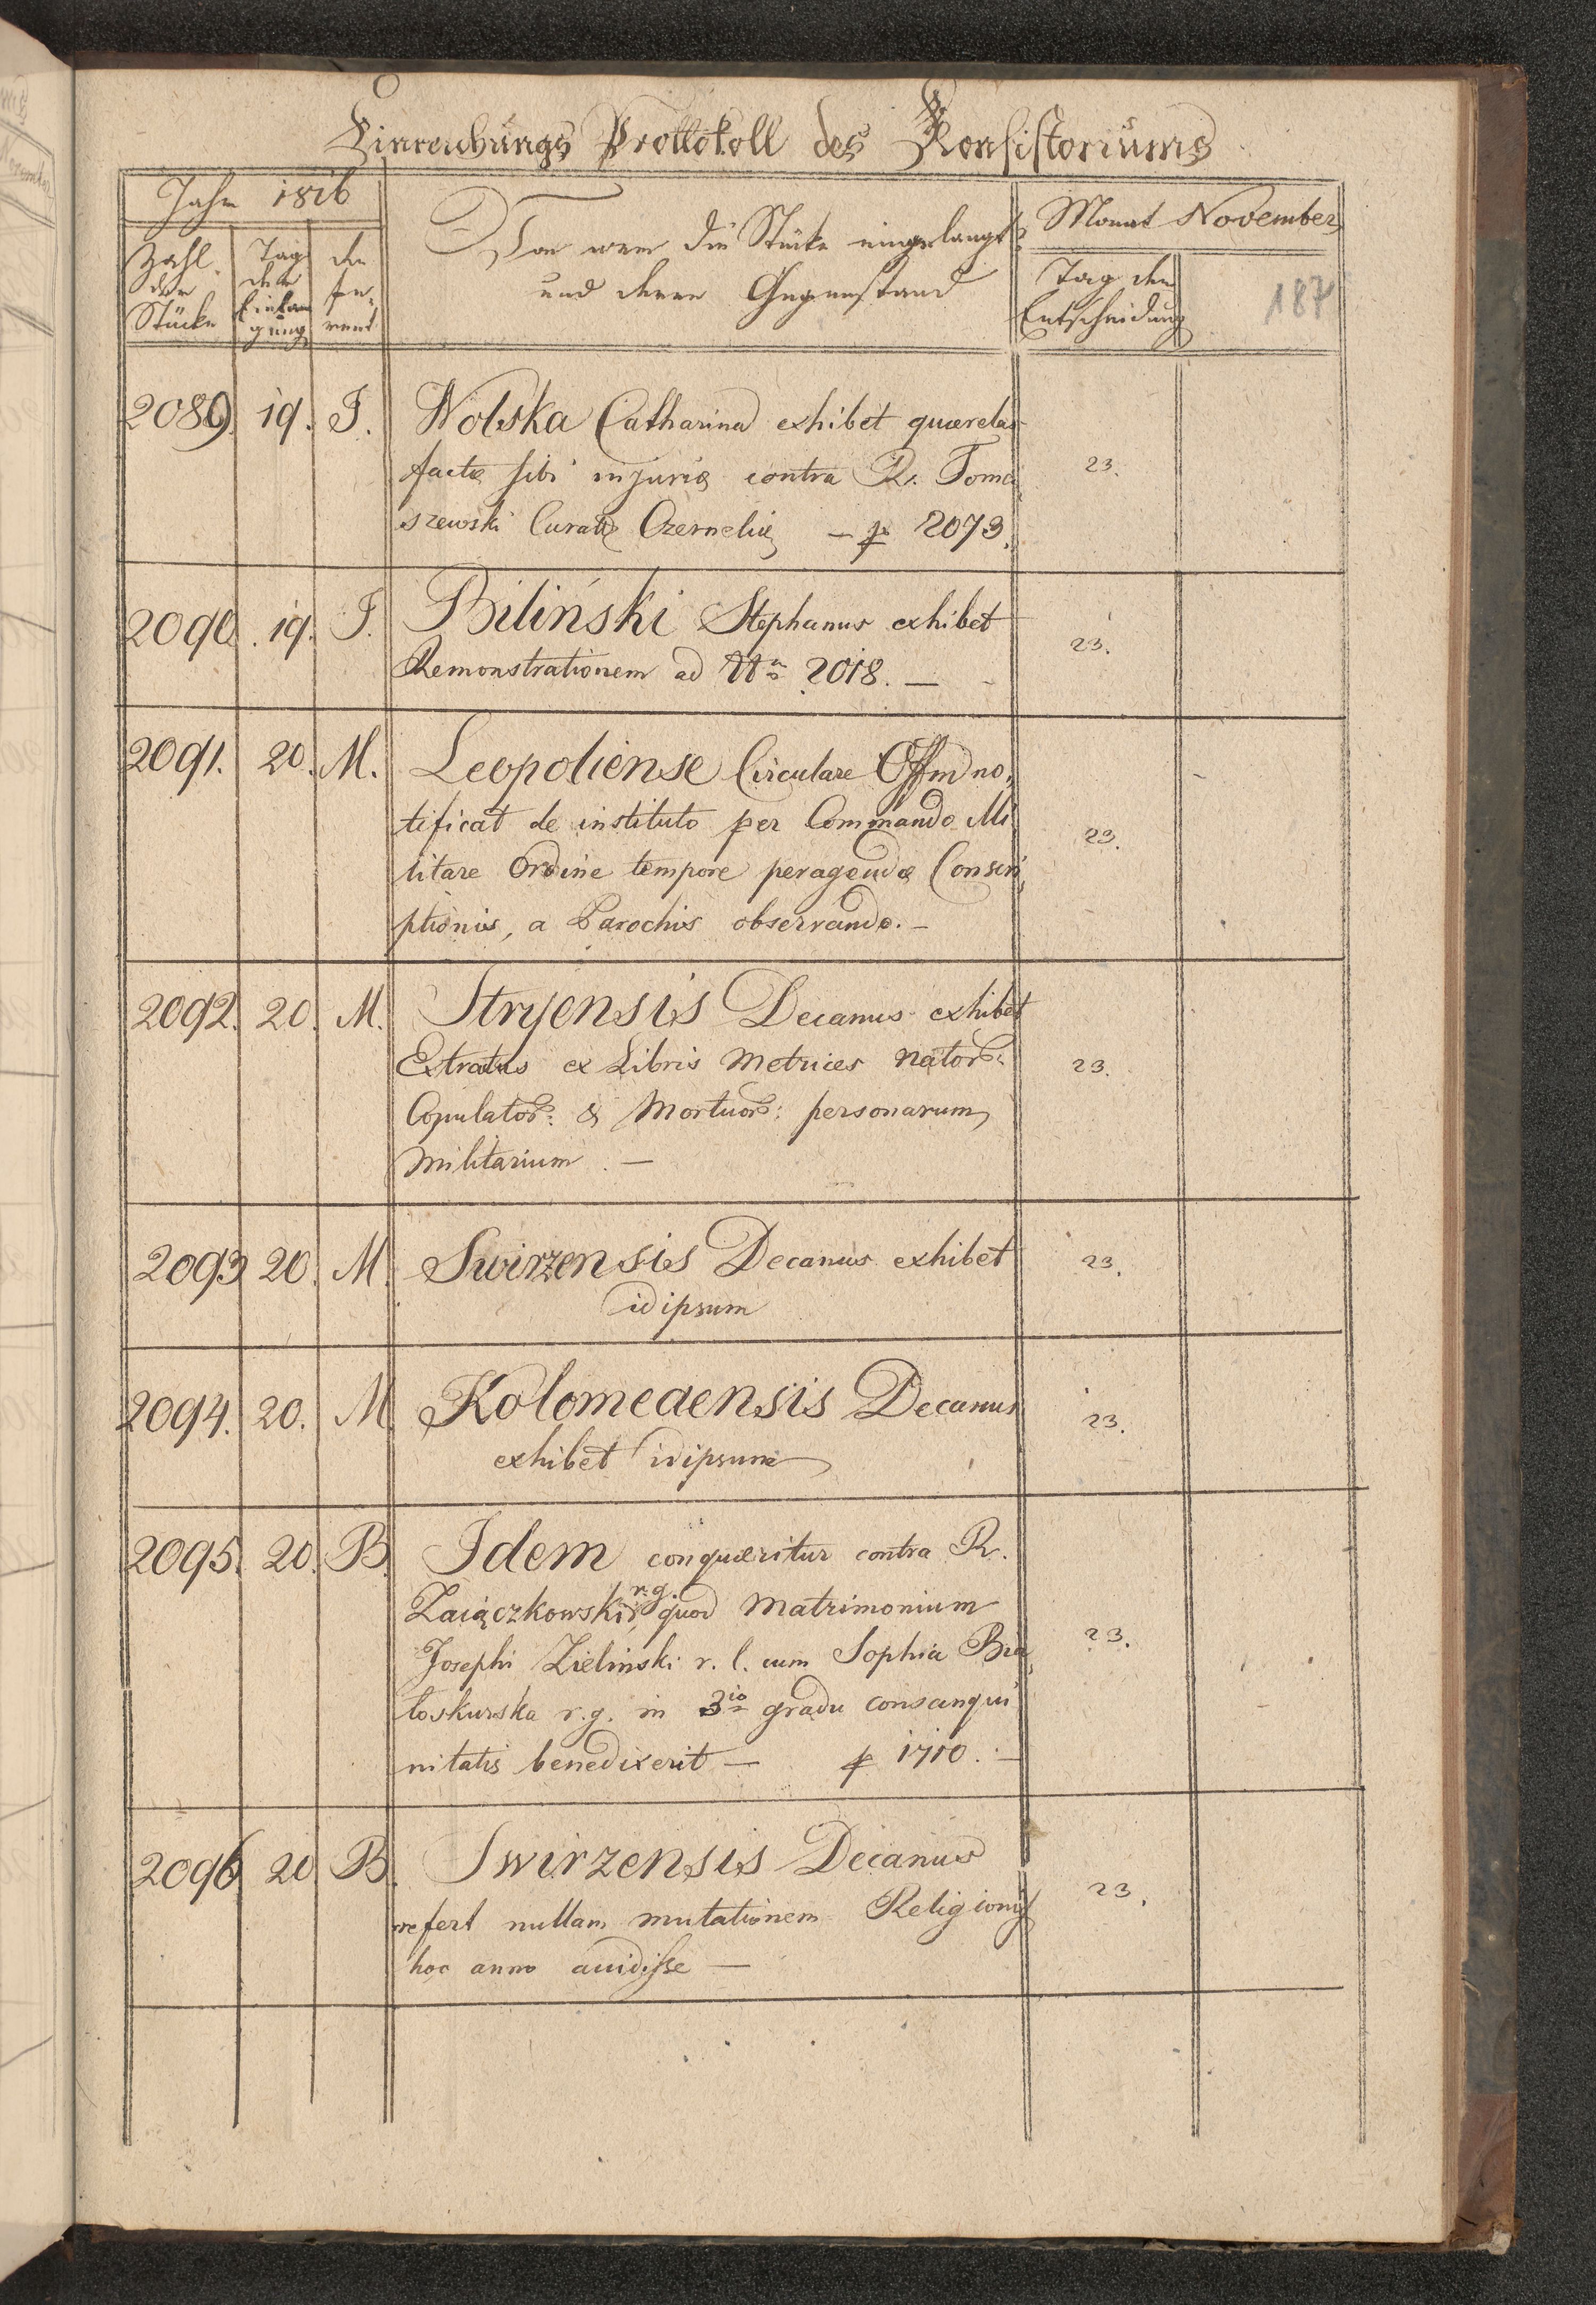 Einreichungs Prottokoll des Konsistoriums
Jahr 1816
Zahl der Stücke
Tag der Einlangung
der Referent
Von wem die Stücke eingelangt
und deren Gegenstand
Monat November
Tag der
Entscheidung
187
2089. 19. J. Wolska Catharina exhibet quærelas
factæ sibi injuriæ contra R. Toma
szewski Curatæ Czerneliæ — p 2073.
23.
2090. 19. J. Biliński Stephanus exhibet
Remonstrationem ad 2018. —
23.
2091. 20. M. Leopoliense Circulare Offm no,
tificat de instituto per Commando Mi
litare Ordine tempore peragendæ Conscri,
ptionis, a Parochis observando. —
23.
2092. 20. M. Stryensis Decanus exhibet
Extratus ex Libris Metrices Nator:
Copulator: & Mortuor: personarum
Militarium. —
23.
2093 20. M. Swirzensis Decanus exhibet
idipsum
23.
2094. 20. M. Kolomeaensis Decanus
exhibet idipsum
23.
2095. 20. B. Idem conquæritur contra R.
Zaiączkowski r.g. quod Matrimonium
Josephi Zielinski r. l. cum Sophia Bia,
loskurska r.g. in 3io gradu consangui
nitatis benedixerit — p 1710. —
23.
2096 20 B. Swirzensis Decanus
refert nullam mutationem Religionis
hoc anno accidisse —
23.